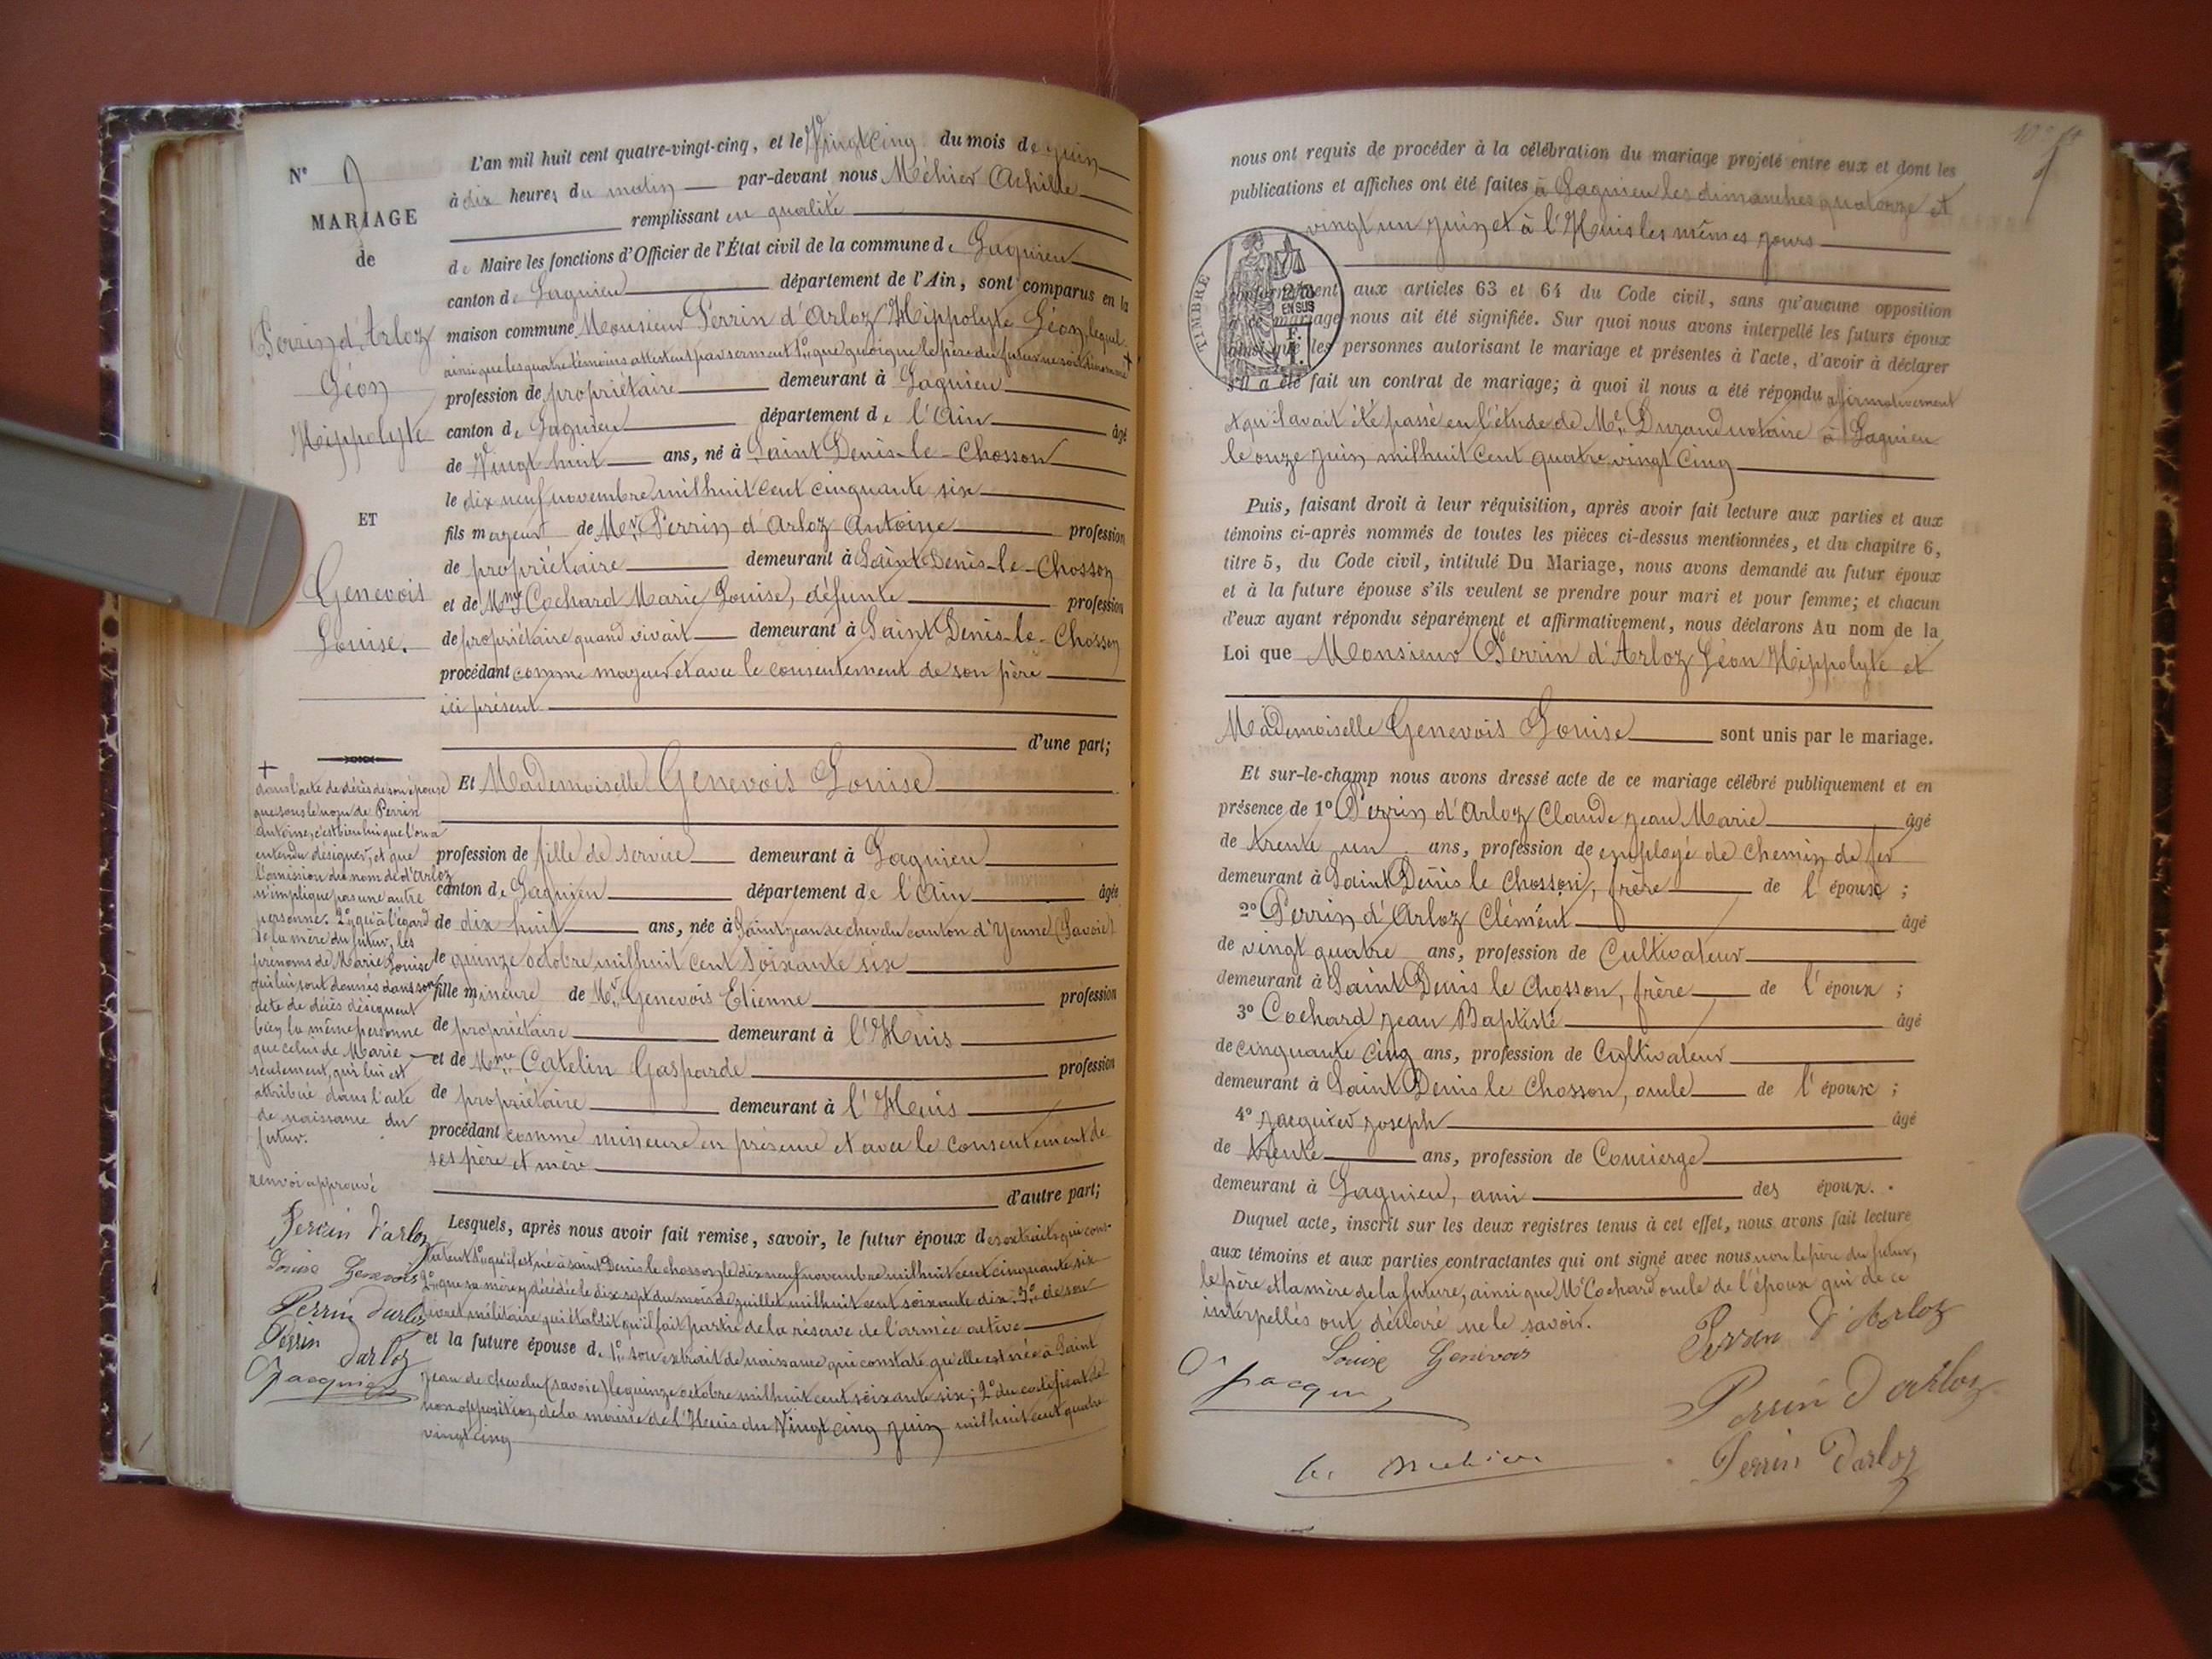 N° 9
MARIAGE
de
Perrin d'Arloz
Léon
Hippolyte
ET
Genevois
Louise.
L'an mil huit cent quatre-vingt-cinq, et le Vingt cinq du mois de juin
à dix heures du matin par-devant nous Méhier Achille
remplissant en qualité
de Maire les fonctions d'Officier de l'État civil de la commune de Lagnieu
canton de Lagnieu département de l'Ain, sont comparus en la
maison commune Monsieur Perrin d'Arloz Hippolyte Léon, lequel
ainsi que les quatre témoins attestent par serment 1° que quoique le père du futur ne soit dénommé +
profession de propriétaire demeurant à Lagnieu
canton de Lagnieu département de l'Ain âgé
de Vingt huit ans, né à Saint Denis-le-Chosson
le dix neuf novembre mil huit cent cinquante six
fils majeur de Mr Perrin d'Arloz Antoine profession
de propriétaire demeurant à Saint Denis-le-Chosson
et de Mme Cochard Marie Louise, défunte profession
de propriétaire quand vivait demeurant à Saint Denis-le-Chosson
procédant comme majeur et avec le consentement de son père
ici présent
d'une part;
Et Mademoiselle Genevois Louise
profession de fille de service demeurant à Lagnieu
canton de Lagnieu département de l'Ain âgée
de dix huit ans, née à Saint jean de chevelu canton d'Yenne (Savoie)
le quinze octobre mil huit cent soixante six
fille mineure de Mr Genevois Etienne profession
de propriétaire demeurant à l'Huis
et de Mme Catelin Gasparde profession
de propriétaire demeurant à l'Huis
procédant comme mineure en présence et avec le consentement de
ses père et mère
d'autre part;
Lesquels, après nous avoir fait remise, savoir, le futur époux des extraits qui cons-
tatent 1° qu'il est né à saint Denis le chosson le dix neuf novembre mil huit cent cinquante six
2° que sa mère y décédée le dix sept du mois de juillet mil huit cent soixante dix. 3° de son
livret militaire qui établit qu'il fait partie de la réserve de l'armée active
et la future épouse de 1° son extrait de naissance qui constate qu'elle est née à Saint
jean de chevelu (savoie) le quinze octobre mil huit cent soixante six; 2° du certificat de
non opposition de la mairie de l'Huis du Vingt cinq juin mil huit cent quatre
vingt cinq
+
dans l'acte de décès de son épouse
que sous le nom de Perrin
Antoine, c'est bien lui que l'on a
entendu désigner, et que
l'omission du nom de d'Arloz
n'implique pas une autre
personne. 2° qu'à l'égard
de la mère du futur, les
prénoms de Marie Louise
qui lui sont donnés dans son
acte de décès désignent
bien la même personne
que celui de Marie
seulement, qui lui est
attribué dans l'acte
de naissance du
futur.
renvoi approuvé
Perrin d'arloz
Louise Genevois
Perrin Darloz
Perrin Darloz
Jacquier
nous ont requis de procéder à la célébration du mariage projeté entre eux et dont les
publications et affiches ont été faites à Lagnieu les dimanches quatorze et
vingt un juin et à l'Huis les mêmes jours
TIMBRE
EN SUS
conformément aux articles 63 et 64 du Code civil, sans qu'aucune opposition
mariage nous ait été signifiée. Sur quoi nous avons interpellé les futurs époux
ainsi que les personnes autorisant le mariage et présentes à l'acte, d'avoir à déclarer
s'il a été fait un contrat de mariage; à quoi il nous a été répondu affirmativement
et qu'il avait été passé en l'étude de Me Durand notaire à Lagnieu
le onze juin mil huit cent quatre vingt cinq
Puis, faisant droit à leur réquisition, après avoir fait lecture aux parties et aux
témoins ci-après nommés de toutes les pièces ci-dessus mentionnées, et du chapitre 6,
titre 5, du Code civil, intitulé Du Mariage, nous avons demandé au futur époux
et à la future épouse s'ils veulent se prendre pour mari et pour femme; et chacun
d'eux ayant répondu séparément et affirmativement, nous déclarons Au nom de la
Loi que Monsieur Perrin d'Arloz Léon Hippolyte et
Mademoiselle Genevois Louise sont unis par le mariage.
Et sur-le-champ nous avons dressé acte de ce mariage célébré publiquement et en
présence de 1° Perrin d'Arloz Claude jean Marie âgé
de trente un ans, profession de employé de chemin de fer
demeurant à Saint Denis le Chosson, frère de l'époux ;
2° Perrin d'Arloz Clément âgé
de vingt quatre ans, profession de Cultivateur
demeurant à Saint Denis le Chosson, frère de l'époux ;
3° Cochard jean Baptiste âgé
de cinquante cinq ans, profession de Cultivateur
demeurant à Saint Denis le Chosson, oncle de l'époux ;
4° jacquier joseph âgé
de trente ans, profession de Concierge
demeurant à Lagnieu, ami des époux.
Duquel acte, inscrit sur les deux registres tenus à cet effet, nous avons fait lecture
aux témoins et aux parties contractantes qui ont signé avec nous non le père du futur,
le père et la mère de la future, ainsi que Mr Cochard oncle de l'époux qui de ce
interpellés ont déclaré ne le savoir.
Louise Genevois
Perrin d'Arloz
Jacquier
Perrin Darloz
Perrin Darloz